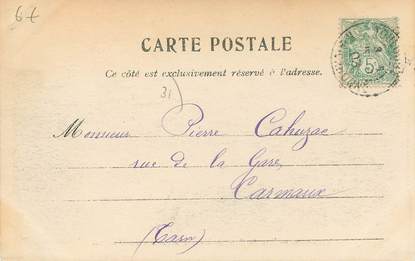 67
CARTE POSTALE
Ce côté est exclusivement réservé à l'adresse.
31
5
Monsieur Pierre Cahuzac
rue de la Gare
Carmaux
(Tarn)